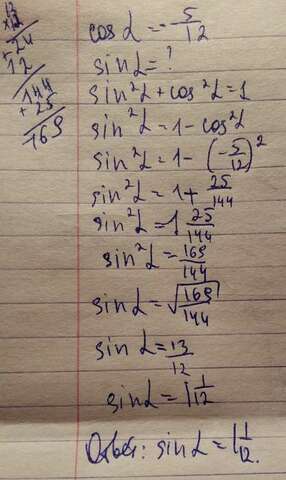 12
× 12
+ 24
12
144
+ 25
169
cos α = - 5/12
sin α = ?
sin² α + cos² α = 1
sin² α = 1 - cos² α
sin² α = 1 - (-5/12)²
sin² α = 1 + 25/144
sin² α = 1 25/144
sin² α = 169/144
sin α = √169/144
sin α = 13/12
sin α = 1 1/12
Ответ: sin α = 1 1/12.